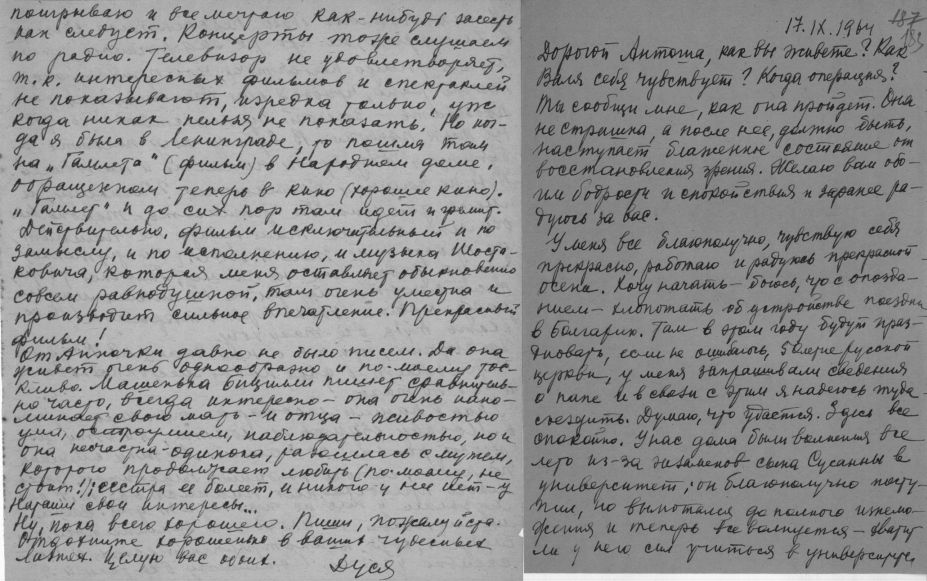 187
185
17.IX.1964
Дорогой Антоша, как вы живете? Как
Валя себя чувствует? Когда операция?
Ты сообщи мне, как она пройдет. Она
не страшна, а после нее, должно быть,
наступает блаженное состояние от
восстановления зрения. Желаю вам обо-
им бодрости и спокойствия и заранее ра-
дуюсь за вас.
У меня все благополучно, чувствую себя
прекрасно, работаю и радуюсь прекрасной
осени. Хочу начать – боюсь, что с опозда-
нием – хлопотать об устройстве поездки
в Болгарию. Там в этом году будут праз-
дновать, если не ошибаюсь, 50летие русской
церкви, у меня запрашивали сведения
о папе и в связи с этим я надеюсь туда
съездить. Думаю, что удастся. Здесь все
спокойно. У нас дома были волнения все
лето из-за экзаменов сына Сусанны в
университет; он благополучно посту-
пил, но вымотался до полного изнемо-
жения и теперь все волнуется – хватит
ли у него сил учиться в университе
поигрываю и все мечтаю как-нибудь засесть
как следует. Концерты тоже слушаем
по радио. Телевизор не удовлетворяет,
т.к. интересных фильмов и спектаклей
не показывают, изредка только, уж
когда никак нельзя не показать. Но ког-
да я была в Ленинграде, то пошла там
на „Гамлета" (фильм) в Народном доме,
обращенном теперь в кино (хорошее кино).
„Гамлет" и до сих пор там идет и гремит.
Действительно, фильм исключительный и по
замыслу, и по исполнению, и музыка Шоста-
ковича, которая меня оставляет обыкновенно
совсем равнодушной, там очень уместна и
производит сильное впечатление. Прекрасный
фильм!
От Анночки давно не было писем. Да она
живет очень однообразно и по-моему тос-
кливо. Машенька пишет сравнитель-
но часто, всегда интересно – она очень напо-
минает свою мать – и отца – живостью
ума, остроумием, наблюдательностью, но и
она несчастна – одинока, разошлась с мужем,
которого продолжает любить (по-моему, не
стоит!); сестра ее болеет, и никого у нее нет – у
Наташи свои интересы...
Ну, пока всего хорошего. Пиши, пожалуйста.
Отдохните хорошенько в ваших чудесных
Целую вас обоих.
Дуся